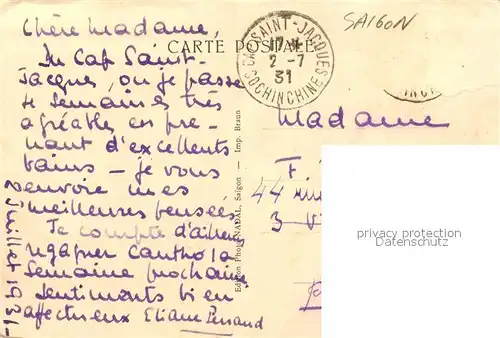 Chère Madame,
Du Cap Saint-
Jacques, où je passe
semaines très
agréables en pre-
nant d'excellents
bains – je vous
envoie mes
meilleures pensées
Je compte d'ailleurs
regagner Cantho la
semaine prochaine
Sentiments bien
affectueux Eliane
2 Juillet 1931-
CARTE POSTALE
CAP SAINT-JACQUES
2-7
31
COCHINCHINE
SAIGON
Madame
44
3
Edition Photo NADAL, Saigon — Imp. Braun
privacy protection
Datenschutz